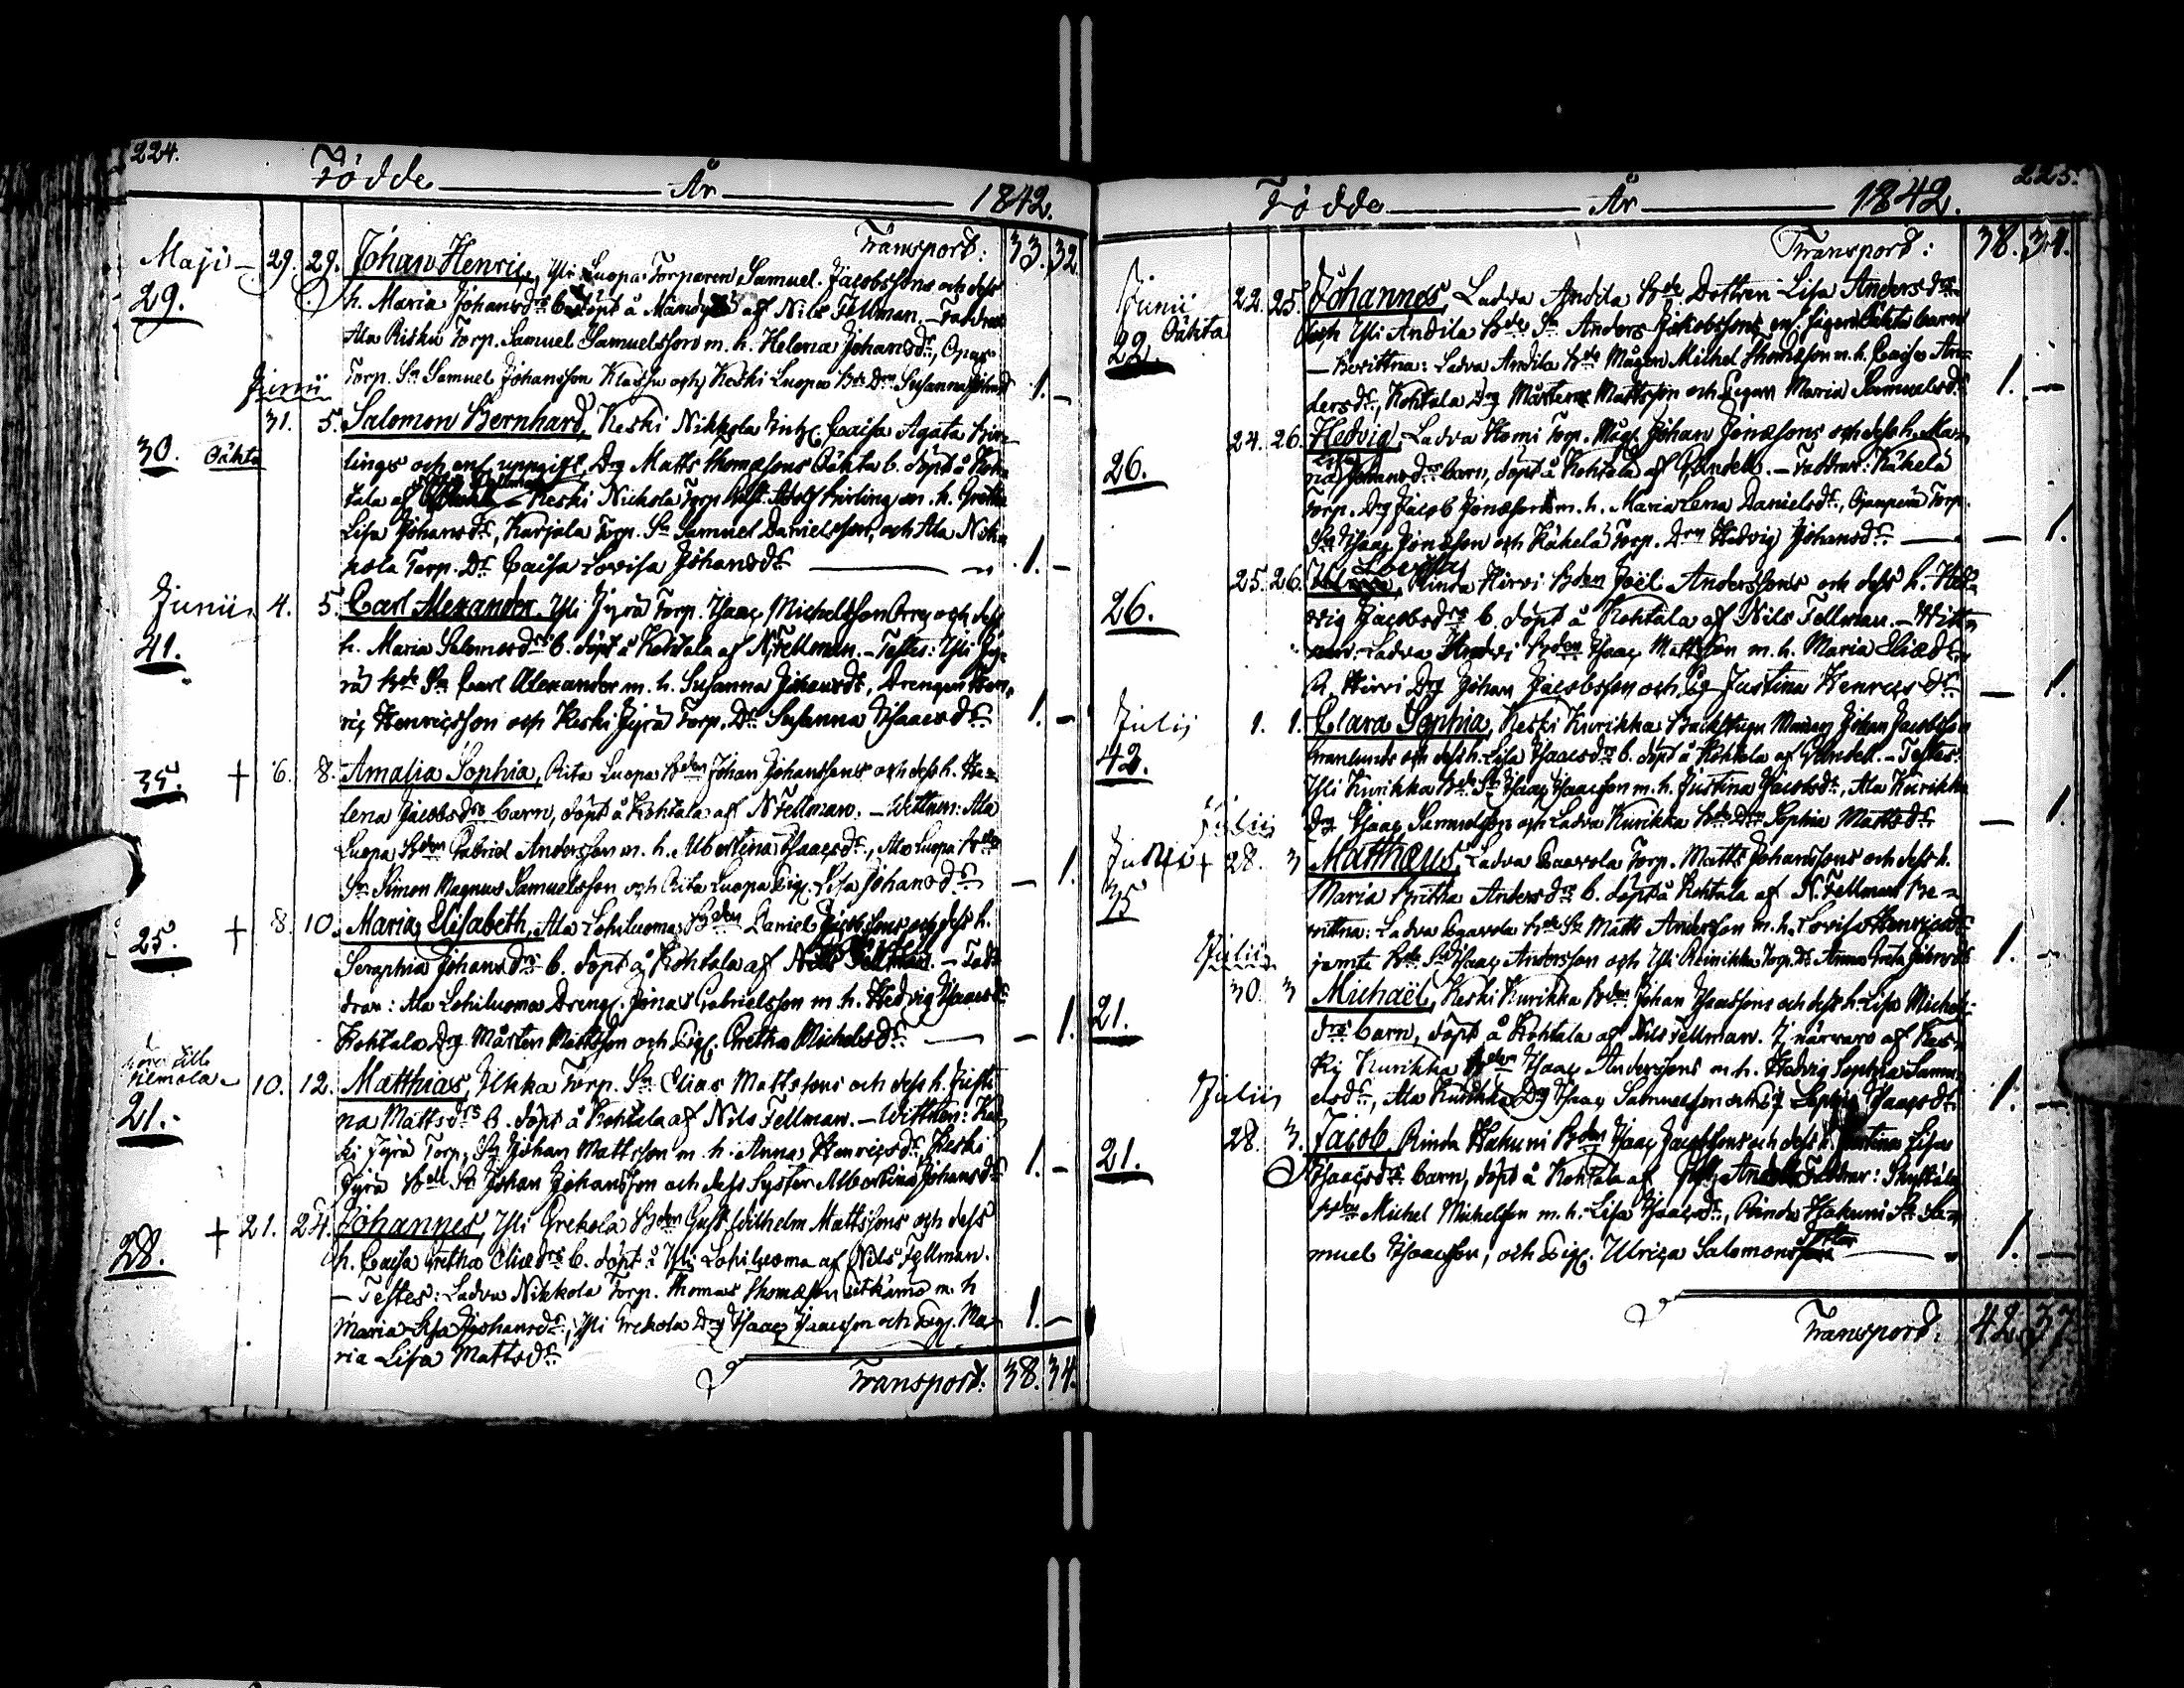 224.
Födde År 1842.
Transport: 33. 32.
Maji 29. 29. Johan Henric, Yli Luopa Torparen Samuel Jacobssons och dess
29. h. Maria Johansdrs döpt å af Nils Fellman. – Faddrar
Ala Risku Torp. Samuel Samuelsson m. h. Helena Johansdr,
Junii Torp. Sn Samuel Johansson och Keski Luopa Susanna 1. –
31. 5. Salomon Bernhard, Keski Nikkola Inh. Caisa Agata
30. Oäkta lings och enl. uppgift Drg Matts Thomæsons Oäkta b. döpt å Koh
tala af – Keski Nickola Torp. Adolf m. h. Gretha
Lisa Johansdr, Karjala Torp. Sn Samuel Danielsson, och Ala Nik
kola Torp. Dr Caisa Lovisa Johansdr 1. –
Junii 4. 5. Carl Alexander, Yli Jyrä Torp. Isaac Michelsson och dess
41. h. Maria Salomosdrs b. döpt å Kohtala af N. Fellman. – Testes: Yli Jy-
rä Bde Sn Carl Alexander m. h. Susanna Johansdr, Drengen Hen-
ric Henricsson och Keski Jyrä Torp. Dr Susanna Isaacsdr 1. –
35. + 6. 8. Amalia Sophia, Rita Luopa Bden Johan Johanssons och dess h. He-
lena Jacobsdrs barn, döpt å Kohtala af N Fellman. – Wittnen: Ala
Luopa Bden Gabriel Andersson m. h. Albertina Isaacsdr, Ala Luopa
Sn Simon Magnus Samuelsson och Rita Luopa Pig. Lisa Johansdr – 1.
25. + 8. 10. Maria Elisabeth, Ala Lohiluoma Bden Daniel Jacobssons och dess h.
Seraphia Johansdrs b. döpt å Kohtala af Nils Fellman. – Fad-
drar: Ala Lohiluoma Dreng. Jonas Gabrielsson m. h. Hedvig Isaacsdr
Kohtala Drg Mårten Mattsson och Pig. Gretha Michelsdr – 1.
hörer till
Ilmola 10. 12. Matthias, Ilkka Torp. Sn Elias Mattssons och dess h. Justi
21. na Mattsdrs b. döpt å Kohtala af Nils Fellman. – Wittnen: Kes
ki Jyrä Torp. Sn Johan Mattsson m. h. Anna Henricsdr, Keski
Jyrä Sn Johan Johansson och dess Syster Albertina Johansdr 1. –
28. + 21. 24. Johannes, Yli Grekola Bden Gust. Wilhelm Mattssons och dess
h. Caisa Gretha Eliædrs b. döpt å Yli Lohiluoma af Nils Fellman.
– Testes: Ladva Nikkola Torp. Thomas Thomæson m. h
Maria Lisa Johansdr, Yli Grekola Drg Isaac Isaacsson och Pig. Ma 1. –
ria Lisa Mattsdr
Transport: 38. 34.
225.
Födde År 1842.
Transport: 38. 34.
Junii 22. 25. Johannes, Ladva Andila Bde Dottren Lisa Andersdrs
22. Oäkta och Yli Andila Bde Sn Anders Jakobssons enl. Oäkta barn
– Bevittna: Ladva Andila Bde Mågen Michel Thomæson m. h. Caisa An-
dersdr, Kohtala Drg Mårten Mattsson och Pigan Maria Samuelsdr 1. –
24. 26. Hedvig, Ladva Torp. Måg. Johan Jonæsons och dess h. Ma-
26. ria Lisa Johansdrs barn, döpt å Kohtala af – Faddrar: Käkelä
Torp. Drg Jacob Jonæson m. h. Maria Lena Danielsdr, Torp.
Sn Isaac Jonæson och Käkelä Torp. Drn Hedvig Johansdr – 1.
25. 26. Lovisa, Rinda Hirvi Bden Joël Anderssons och dess h. Hed
26. vig Jacobsdrs b. döpt å Kohtala af Nils Fellman. – Witt
nen: Ladva Bden Isaac Mattsson m. h. Maria Eliædr,
R. Hirvi Drg Johan Jacobsson och Pig Justina Henricsdr – 1.
Julii 1. 1. Clara Sophia, Keski Kurikka Johan Jacobsson
42. Granlunds och dess h. Lisa Isaacsdrs b. döpt å Kohtala af – Testes:
Yli Kurikka Bde Sn Isaac Isaacsson m. h. Justina Jacobsdr, Ala Kurikka
Julii Drg Isaac Samuelsson och Ladva Kurikka Bde Drn Sophia Mattsdr – 1.
Junii + 28. 3 Matthæus, Ladva Paavola Torp. Matts Johanssons och dess h.
35 Maria Britha Andersdrs b. döpt å Kohtala af N. Fellman Be-
vittna: Ladva Paavola Bde Sn Matts Andersson m. h. Lovisa Henricsdr
Julii jemte Bde Sn Isaac Andersson och Yli Reinikka Torp. Dr Anna Greta Johansdr 1. –
30. 3 Michaël, Keski Kurikka Bden Johan Isaacssons och dess h. Lisa Michels-
21. drs barn, döpt å Kohtala af Nils Fellman. I närvaro af Kes-
ki Kurikka Bden Isaac Anderssons m. h. Hedvig Sophia Samu-
Julii elsdr, Ala Kurikka Drg Isaac Samuelsson och Pig Sophia Isaacsdr 1. –
28. 3. Jacob, Rinda Hakuni Bden Isaac Jacobssons och dess h. Lisa
21. Isaacsdrs barn, döpt å Kohtala af Faddrar:
Bden Michel Michelsson m. h. Lisa Isaacsdr, Rinda Hakuni Sn Sa-
muel Isaacsson, och Pig. Ulrica Salomonsdotter 1. –
Transport: 42. 37.